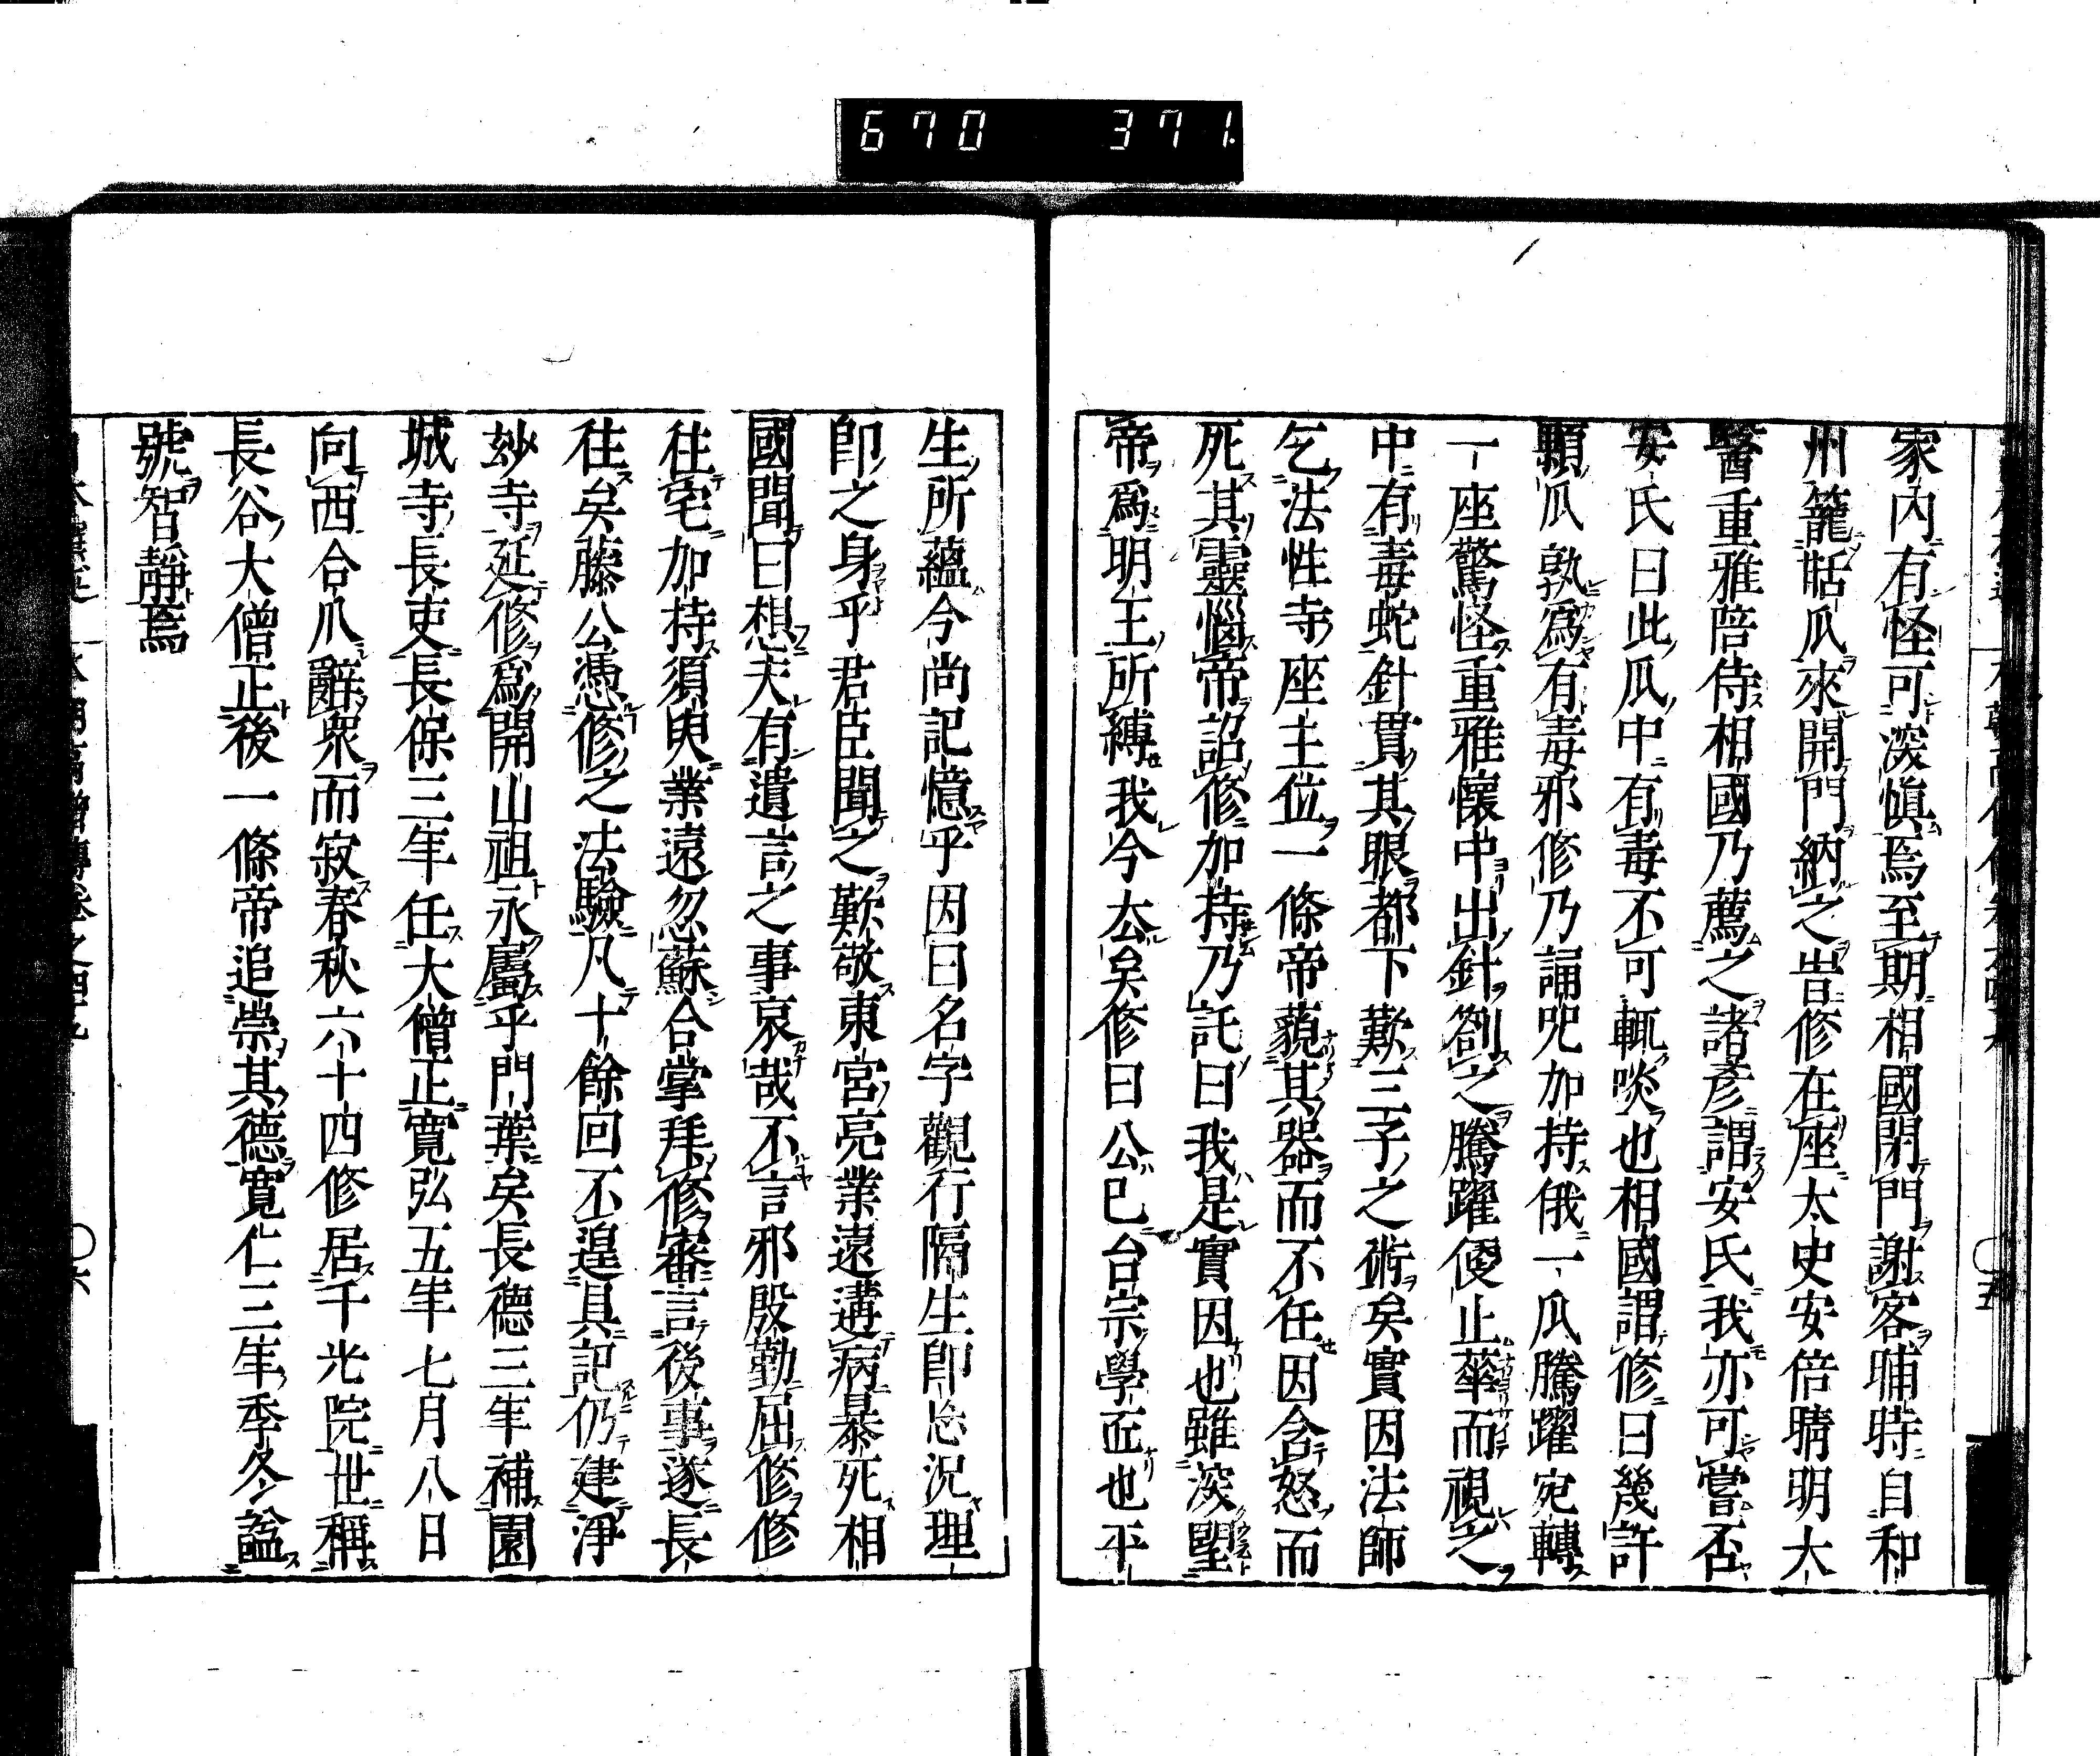 670 371
家内有怪可深愼焉至期相國閉門謝客晡時自和
州籠甛瓜來開門納之旹修在座太史安倍晴明大
醫重雅陪侍相國乃薦之諸彥謂安氏我亦可嘗否
安氏曰此瓜中有毒不可輒啖也相國謂修曰幾許
顆瓜孰爲有毒邪修乃誦呪加持俄一瓜騰躍宛轉
一座驚怪重雅懷中出針劄之騰躍便止華而視之
中有毒蛇針貫其眼都下歎三子之術矣實因法師
乞法性寺座主位一條帝藐其器而不任因含怒而
死其靈惱帝詔修加持乃託曰我是實因也雖深朢
帝爲明王所縛我今去矣修曰公已台宗學匠也平
生所蘊今尚記憶乎因曰名字觀行隔生卽忘況理
卽之身乎君臣聞之歎敬東宮亮業遠遘病暴死相
國聞曰想夫有遺言之事哀哉不言邪殷勤屈修修
往宅加持須臾業遠忽蘇合掌拜修審言後事遂長
往矣藤公憑修之法驗凡十餘回不遑具記仍建淨
玅寺延修爲開山祖永屬乎門葉矣長德三年補園
城寺長吏長保三年任大僧正寬弘五年七月八日
向西合爪辭衆而寂春秋六十四修居千光院世稱
長谷大僧正後一條帝追崇其德寬仁三年季冬諡
號智靜焉